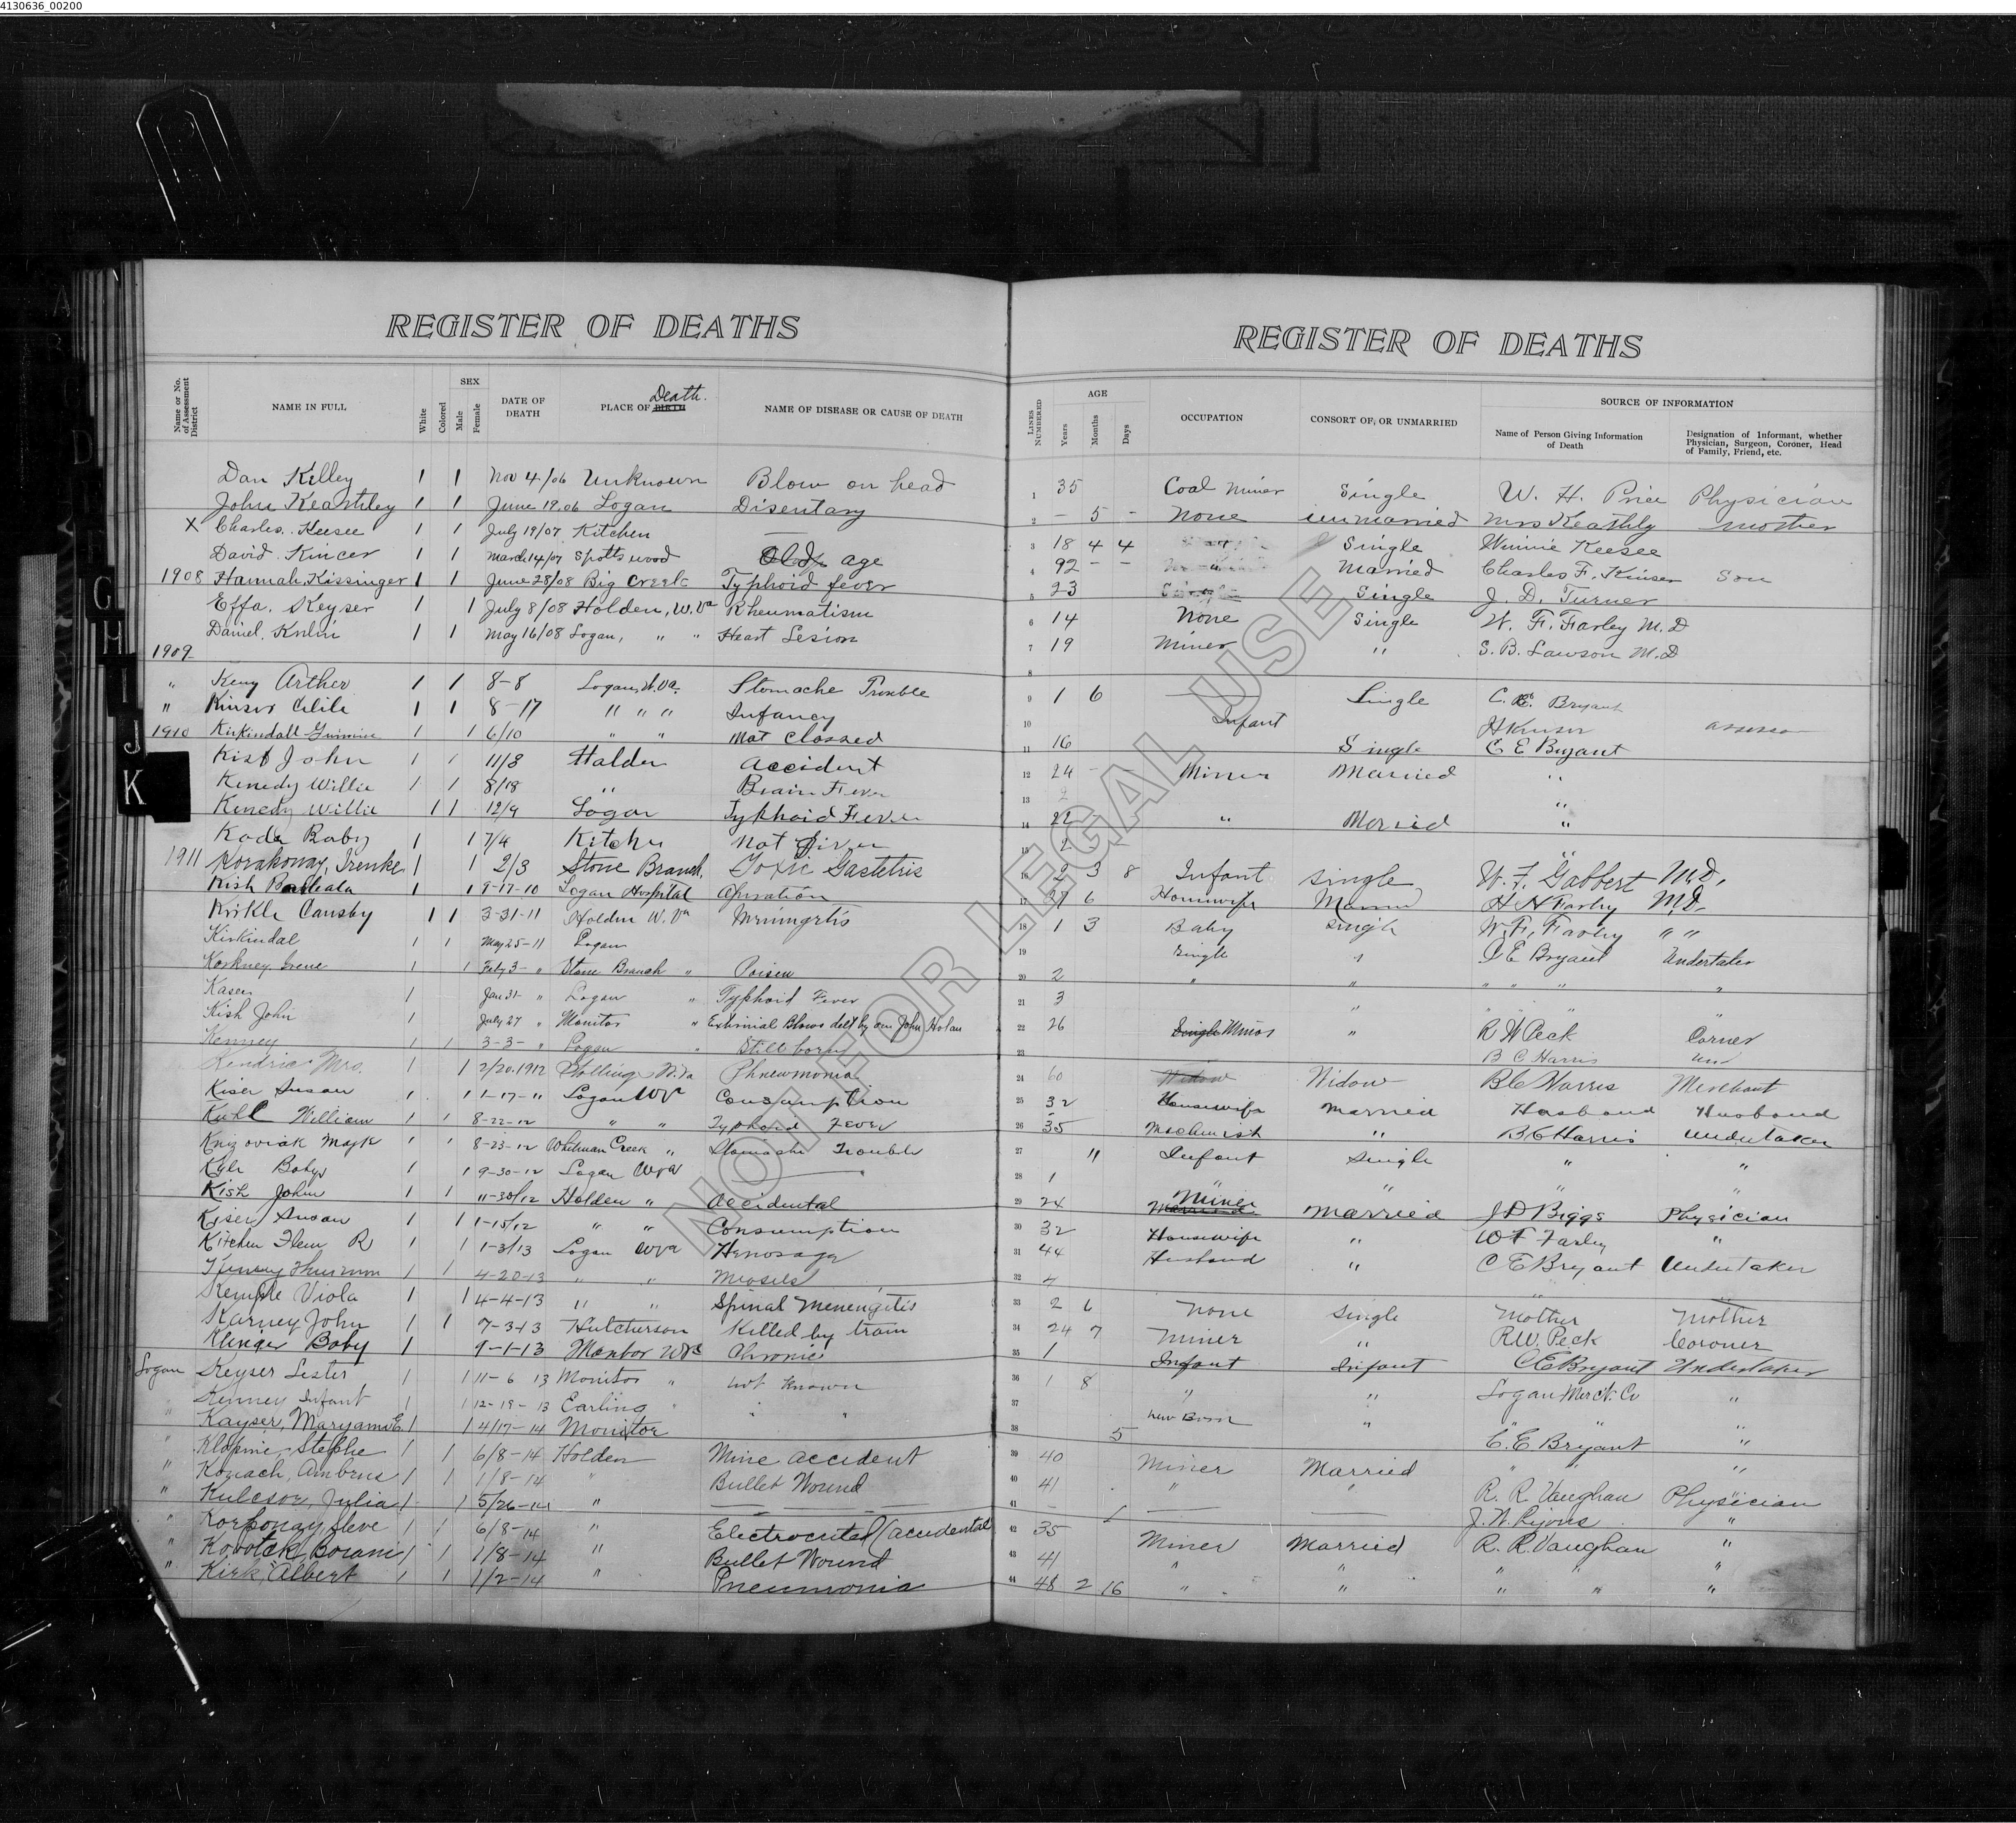 4130636_00200
REGISTER OF DEATHS
REGISTER OF DEATHS
Name or No. of Assessment District NAME IN FULL White Colored SEX Male Female DATE OF DEATH PLACE OF BIRTH Death. NAME OF DISEASE OR CAUSE OF DEATH
LINES NUMBERED AGE Years Months Days OCCUPATION CONSORT OF, OR UNMARRIED SOURCE OF INFORMATION Name of Person Giving Information of Death Designation of Informant, whether Physician, Surgeon, Coroner, Head of Family, Friend, etc.
Dan Killey 1 1 Nov 4/06 Unknown Blow on head 1 35 Coal Miner Single W. H. Price Physician
John Keathley 1 1 June 19.06 Logan Disentary 2 - 5 - None unmarried Mrs Keathly Mother
X Charles. Keesee 1 1 July 19/07 Kitchen 3 18 4 4 Single Winnie Keesee
David Kincer 1 1 March 14/07 Spottswood Old age 4 92 - - Married Charles F. Kinser Son
1908 Hannah Kissinger 1 1 June 28/08 Big Creek Typhoid fever 5 23 Single J. D. Turner
Effa. Keyser 1 1 July 8/08 Holden, W. Va Rheumatism 6 14 None Single W. F. Farley M.D
Daniel 1 1 May 16/08 Logan, " " Heart Lesion 7 19 Miner " S. B. Lawson M.D
1909 8
" Keny Arther 1 1 8-8 Logan, W. Va. Stomache Trouble 9 1 6 Single C. E. Bryant
" Kinser 1 1 8-17 " " " Infancy 10 Infant H Kinser
1910 Kirkindall 1 1 6/10 " " Not Classed 11 16 Single C E Bryant
Kist John 1 1 11/3 Halden Accident 12 24 Miner Married "
Kenedy Willie 1 1 8/18 " Brain Fever 13 2 "
Kenedy Willie 1 1 12/9 Logan Typhoid Fever 14 22 " Married "
Koda Baby 1 1 7/4 Not Given 15 2 "
1911 Korakonay, Irenke 1 1 2/3 Stone Branch, Toxic Gastetiis 16 2 3 8 Infant Single W. F. Gabbert M.D.
Kish 1 1 9-17-10 Logan Hospital Operation 17 27 6 Housewife H H Farley M.D.
Kirkle Cansby 1 1 3-31-11 Holden W. Va 18 1 3 Baby Single W. F. Farley " "
Kirkindal 1 1 May 25-11 Logan 19 Single " C E Bryant Undertaker
Korkney Irene 1 1 Feby 3- " Stone Branch " Poisen 20 2 " " " " " "
Kasen 1 Jan 31- " Logan " Typhoid Fever 21 3 " " "
Kish John 1 July 27 " Monitor " Blows delt by one John Holan 22 26 Single Minor " R W Peck Corner
Kenney 1 1 3-3- " Logan " Still born 23 B C Harris Und
Kendric Mrs. 1 1 2/20.1912 W. Va Phnewmonia 24 60 Widow Widow B C Harris Merchant
Kiser Susan 1 1 1-17- " Logan W Va Consumption 25 32 Housewife Married Husband Husband
Kuhl William 1 1 8-22-12 " " Typhoid Fever 26 35 Mechinist " B C Harris Undertaker
Knizoviak Majk 1 1 8-23-12 Whitman Creek " Stomache Trouble 27 11 Infant Single " "
Kyle Baby 1 1 9-30-12 Logan W Va 28 1 " " "
Kish John 1 1 11-30/12 Holden " Accidental 29 24 Miner Married Married J D Biggs Physician
Kiser Susan 1 1 1-15/12 " " Consumption 30 32 Housewife " W F Farley "
Kitchen Flem R 1 1 1-3/13 Logan W Va 31 44 Husband " C E Bryant Undertaker
1 1 4-20-13 " " Measels 32 4
Kemple Viola 1 1 4-4-13 " " Spinal Menengitis 33 2 6 None Single Mother Mother
Karney John 1 1 7-3-13 Hutcherson Killed by train 34 24 7 Miner " R W. Peck Coroner
Klinger Baby 1 9-1-13 W Va Chronic 35 1 Infant Infant C E Bryant Undertaker
Logan Keyser Lester 1 1 11-6 13 Monitor " not Known 36 1 8 " " Logan Merct. Co "
" Kenney Infant 1 1 12-19-13 Earling " " " 37 New Born " " "
" Kayser, Maryann E. 1 1 4/17-14 Monitor 38 5 C. E Bryant "
" Klopine Stephe 1 1 6/8-14 Holden Mine accident 39 40 Miner Married " "
" Konach, Ambrus 1 1 1/8-14 " Bullet Wound 40 41 " " R. R Vaughan Physician
" Kulcsor, Julia 1 1 5/26-14 " 41 J. W. Lyons "
" Korponay Steve 1 1 6/8-14 " Electrocuted (accidental 42 35 Miner Married R. R. Vaughan "
" 1 1 1/8-14 " Bullet Wound 43 41 " " " "
" Kirk, Albert 1 1 1/2-14 " Pneumonia 44 48 2 16 " " " " "
G
H
I
J
K
NOT FOR LEGAL USE